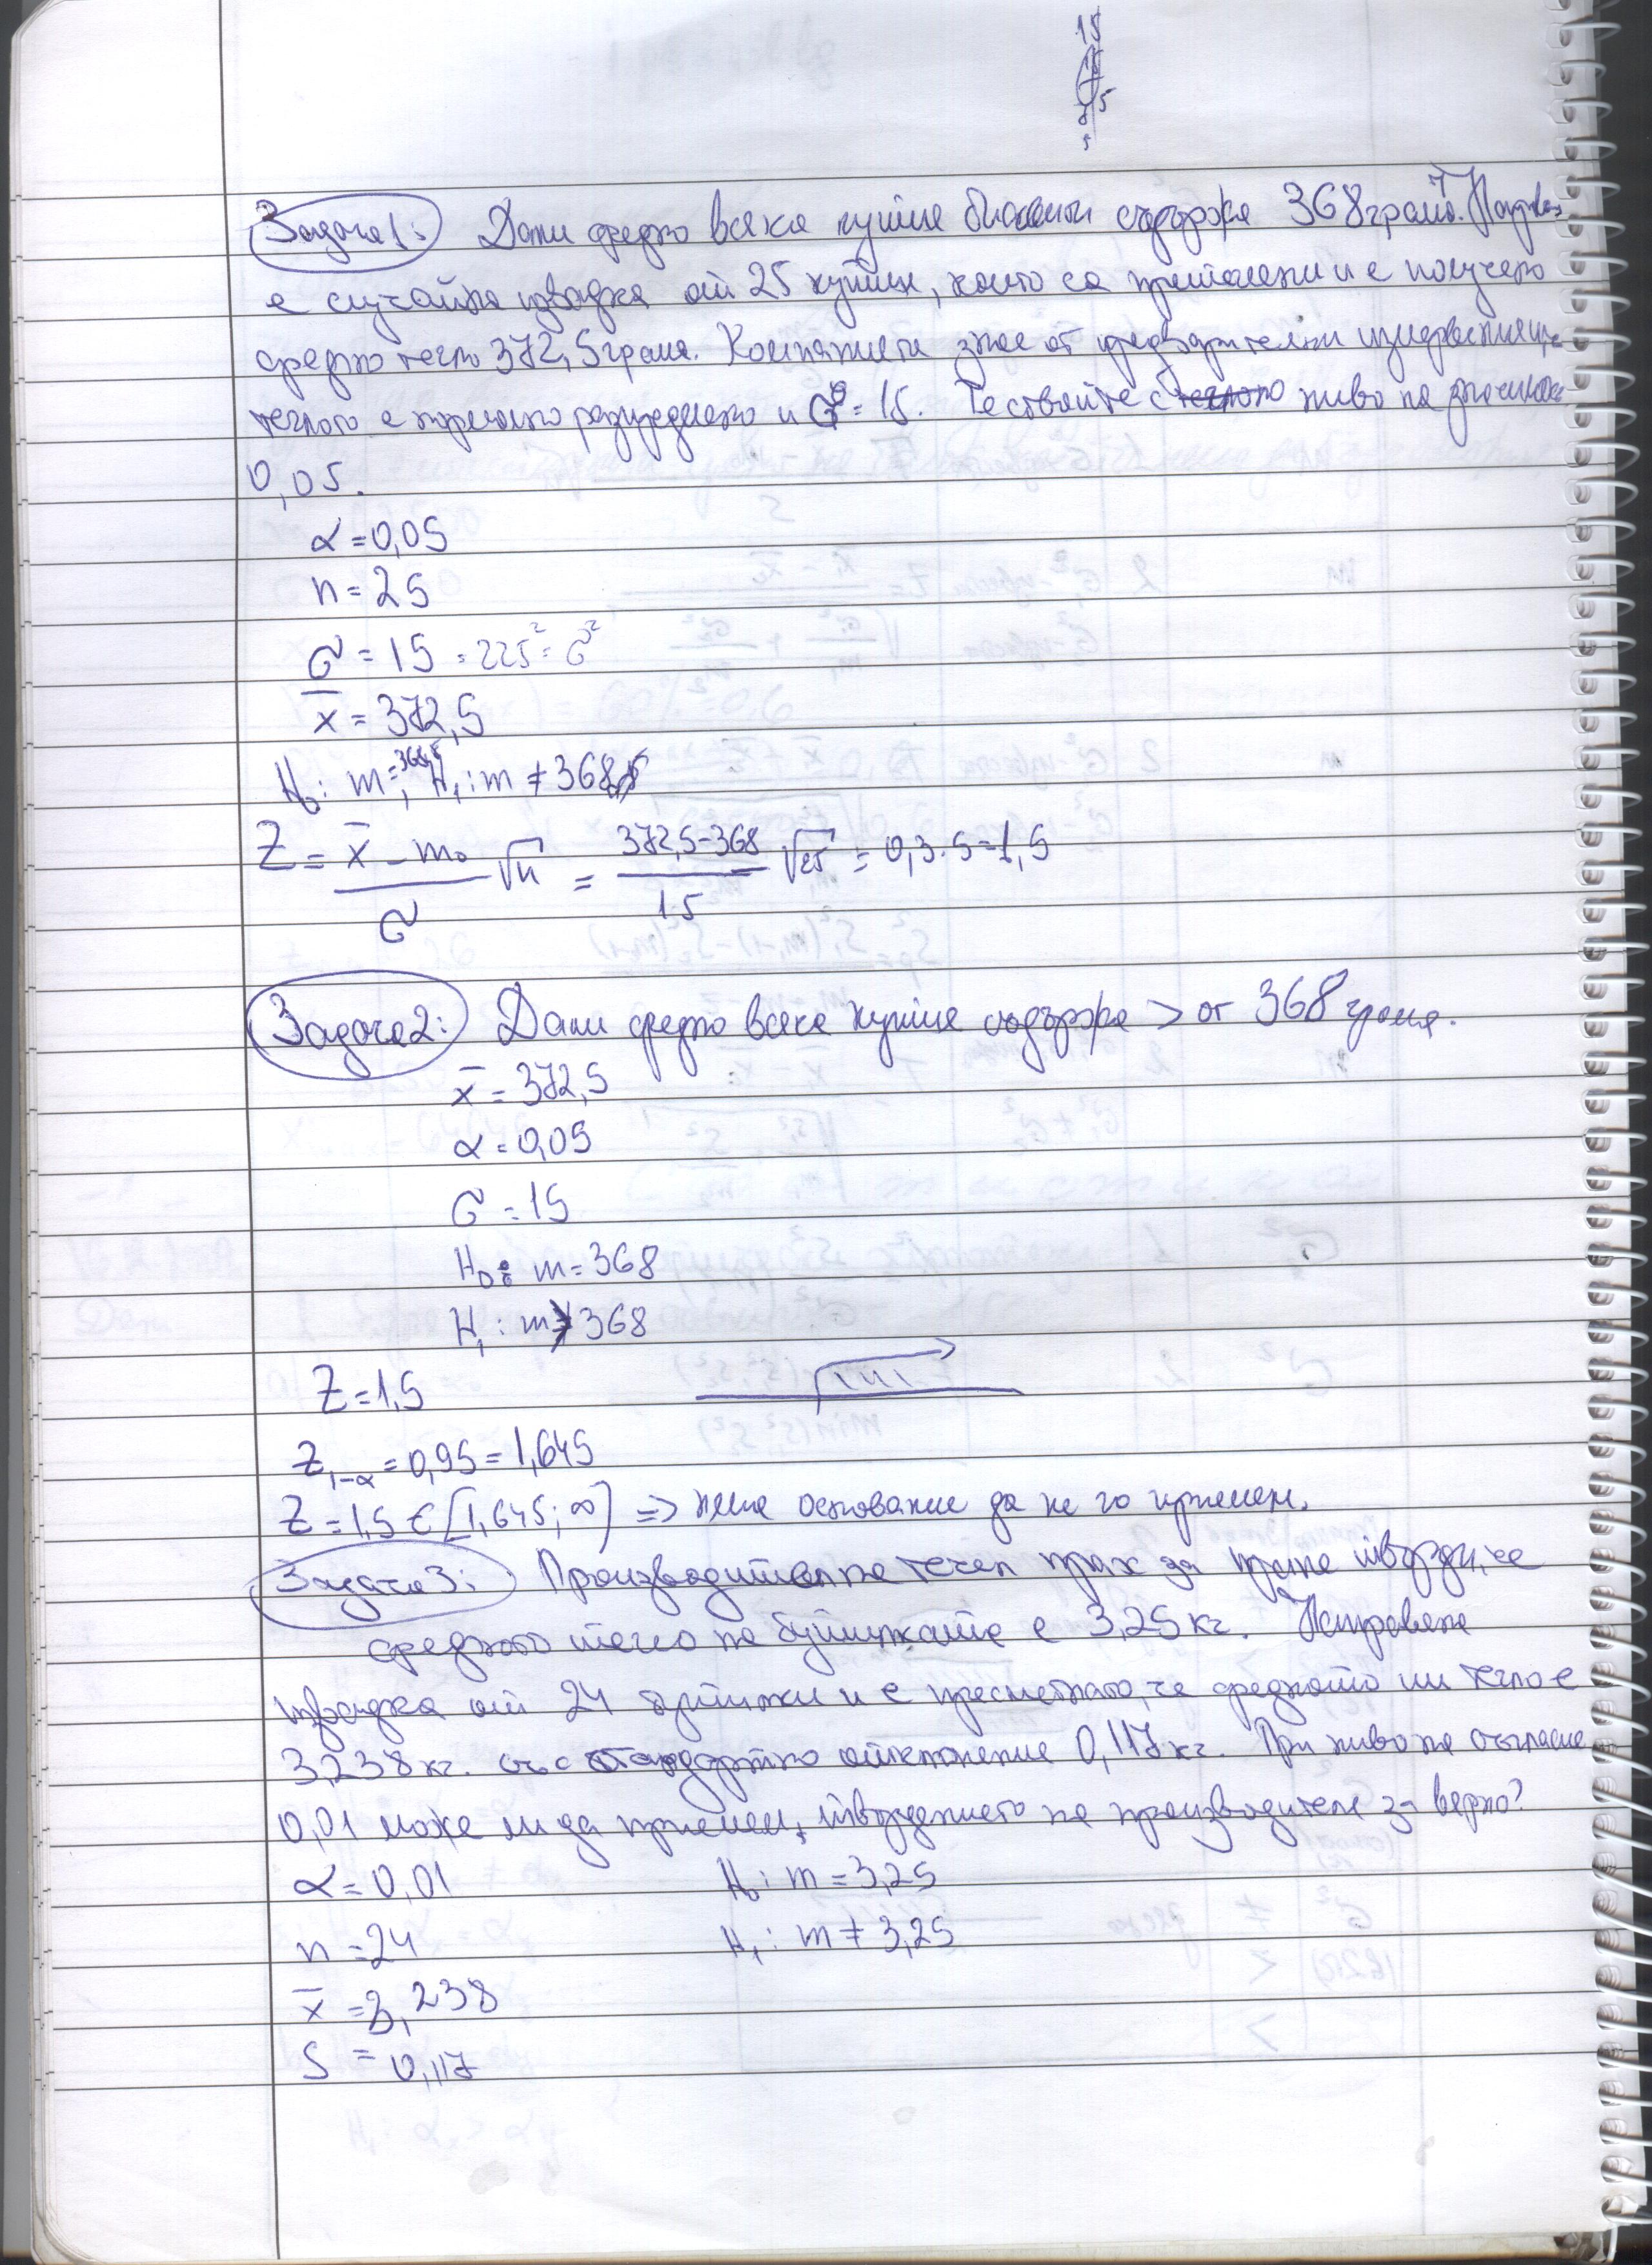 15
5
Задача 1: Дали средно всяка кутия бисквити съдържа 368 грама. Направена
е случайна извадка от 25 кутии, които са претеглени и е получено
средно тегло 372,5 грама. Компанията знае от предварителни измервания, че
теглото е нормално разпределено и σ = 15. Тествайте с тегло ниво на значимост
0,05.
α = 0,05
n = 25
σ = 15 = 225² = σ²
x̄ = 372,5
H₀: m = 368; H₁: m ≠ 368
Z = (x̄ - m₀)/σ √n = (372,5-368)/15 √25 = 0,3.5 = 1,5
Задача 2: Дали средно всяка кутия съдържа > от 368 грама.
x̄ = 372,5
α = 0,05
σ = 15
H₀: m = 368
H₁: m > 368
Z = 1,5
Z₁₋α = 0,95 = 1,645
Z = 1,5 ∈ [1,645; ∞) => няма основание да не го приемем.
Задача 3: Производител на течен прах за пране твърди, че
средното тегло на бутилките е 3,25 кг. Направена
извадка от 24 бутилки и е пресметнато, че средното им тегло е
3,238 кг. със стандартно отклонение 0,117 кг. При ниво на съгласие
0,01 може ли да приемем, твърдението на производителя за вярно?
α = 0,01 H₀: m = 3,25
n = 24 H₁: m ≠ 3,25
x̄ = 3,238
S = 0,117